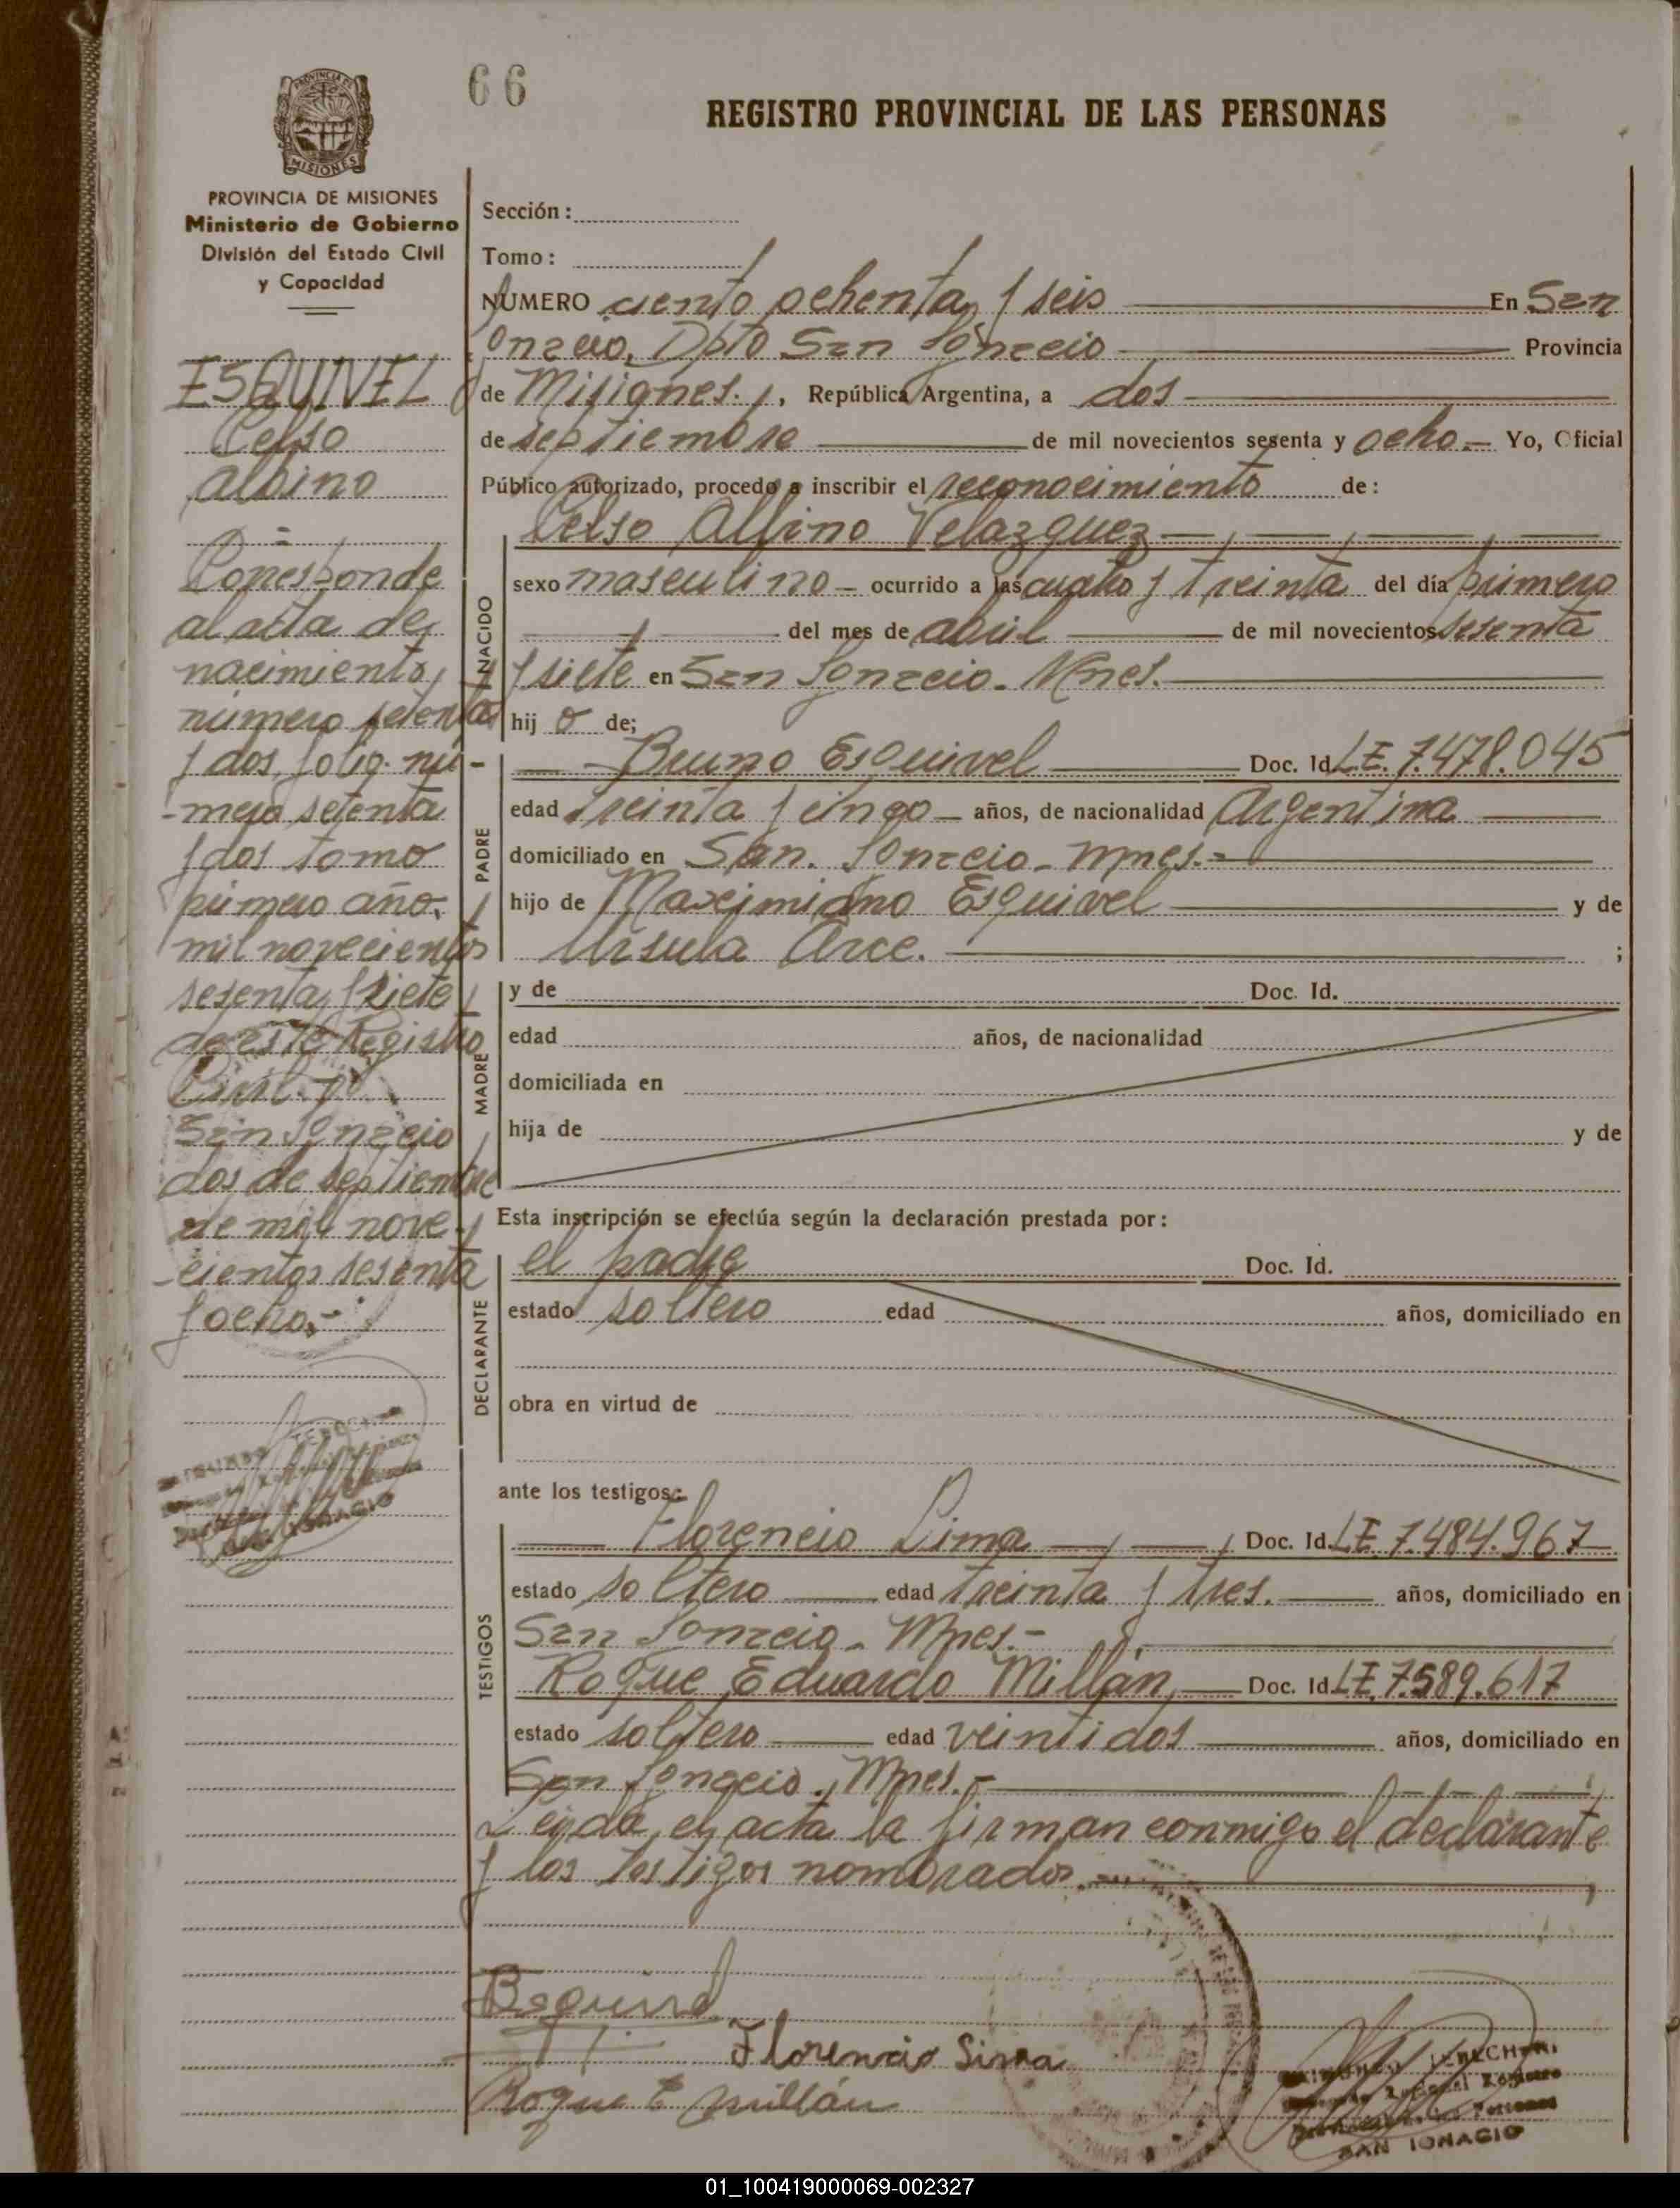 66
REGISTRO PROVINCIAL DE LAS PERSONAS
PROVINCIA DE
MISIONES
PROVINCIA DE MISIONES
Ministerio de Gobierno
División del Estado Civil
y Capacidad
ESQUIVEL
Celso
Albino
Corresponde
al acta de
nacimiento,
número setenta
y dos, folio nú-
mero setenta
y dos tomo
primero año,
mil novecientos
sesenta y siete
de este Registro
Civil.
San Ignacio
dos de septiembre
de mil nove-
cientos sesenta
y ocho.-
SAN IGNACIO
Sección:
Tomo:
NUMERO ciento ochenta y seis En San
Ignacio, Dpto San Ignacio Provincia
de Misiones., República Argentina, a dos
de septiembre de mil novecientos sesenta y ocho.- Yo, Oficial
Público autorizado, procedo a inscribir el reconocimiento de:
Celso Albino Velazquez
NACIDO
sexo masculino - ocurrido a las cuatro y treinta del día primero
del mes de abril de mil novecientos sesenta
y siete en San Ignacio. Mnes.
hij o de;
PADRE
Bruno Esquivel Doc. Id. LE. 7.478.045
edad treinta y cinco - años, de nacionalidad Argentina
domiciliado en San. Ignacio - Mnes.-
hijo de Maximiano Esquivel y de
Ursula Arce. ;
MADRE
y de Doc. Id.
edad años, de nacionalidad
domiciliada en
hija de y de
Esta inscripción se efectúa según la declaración prestada por:
DECLARANTE
el padre Doc. Id.
estado soltero edad años, domiciliado en
obra en virtud de
ante los testigos:
TESTIGOS
Florencio Lima Doc. Id. LE 7.484.967
estado soltero edad treinta y tres. años, domiciliado en
San Ignacio - Mnes.-
Roque Eduardo Millán Doc. Id. LE. 7.589.617
estado soltero edad veintidos años, domiciliado en
San Ignacio., Mnes.-
Leida el acta la firman conmigo el declarante
y los testigos nombrados.
BEsquivel
Florencio Lima
Roque E Millán
SAN IGNACIO
01_100419000069-002327